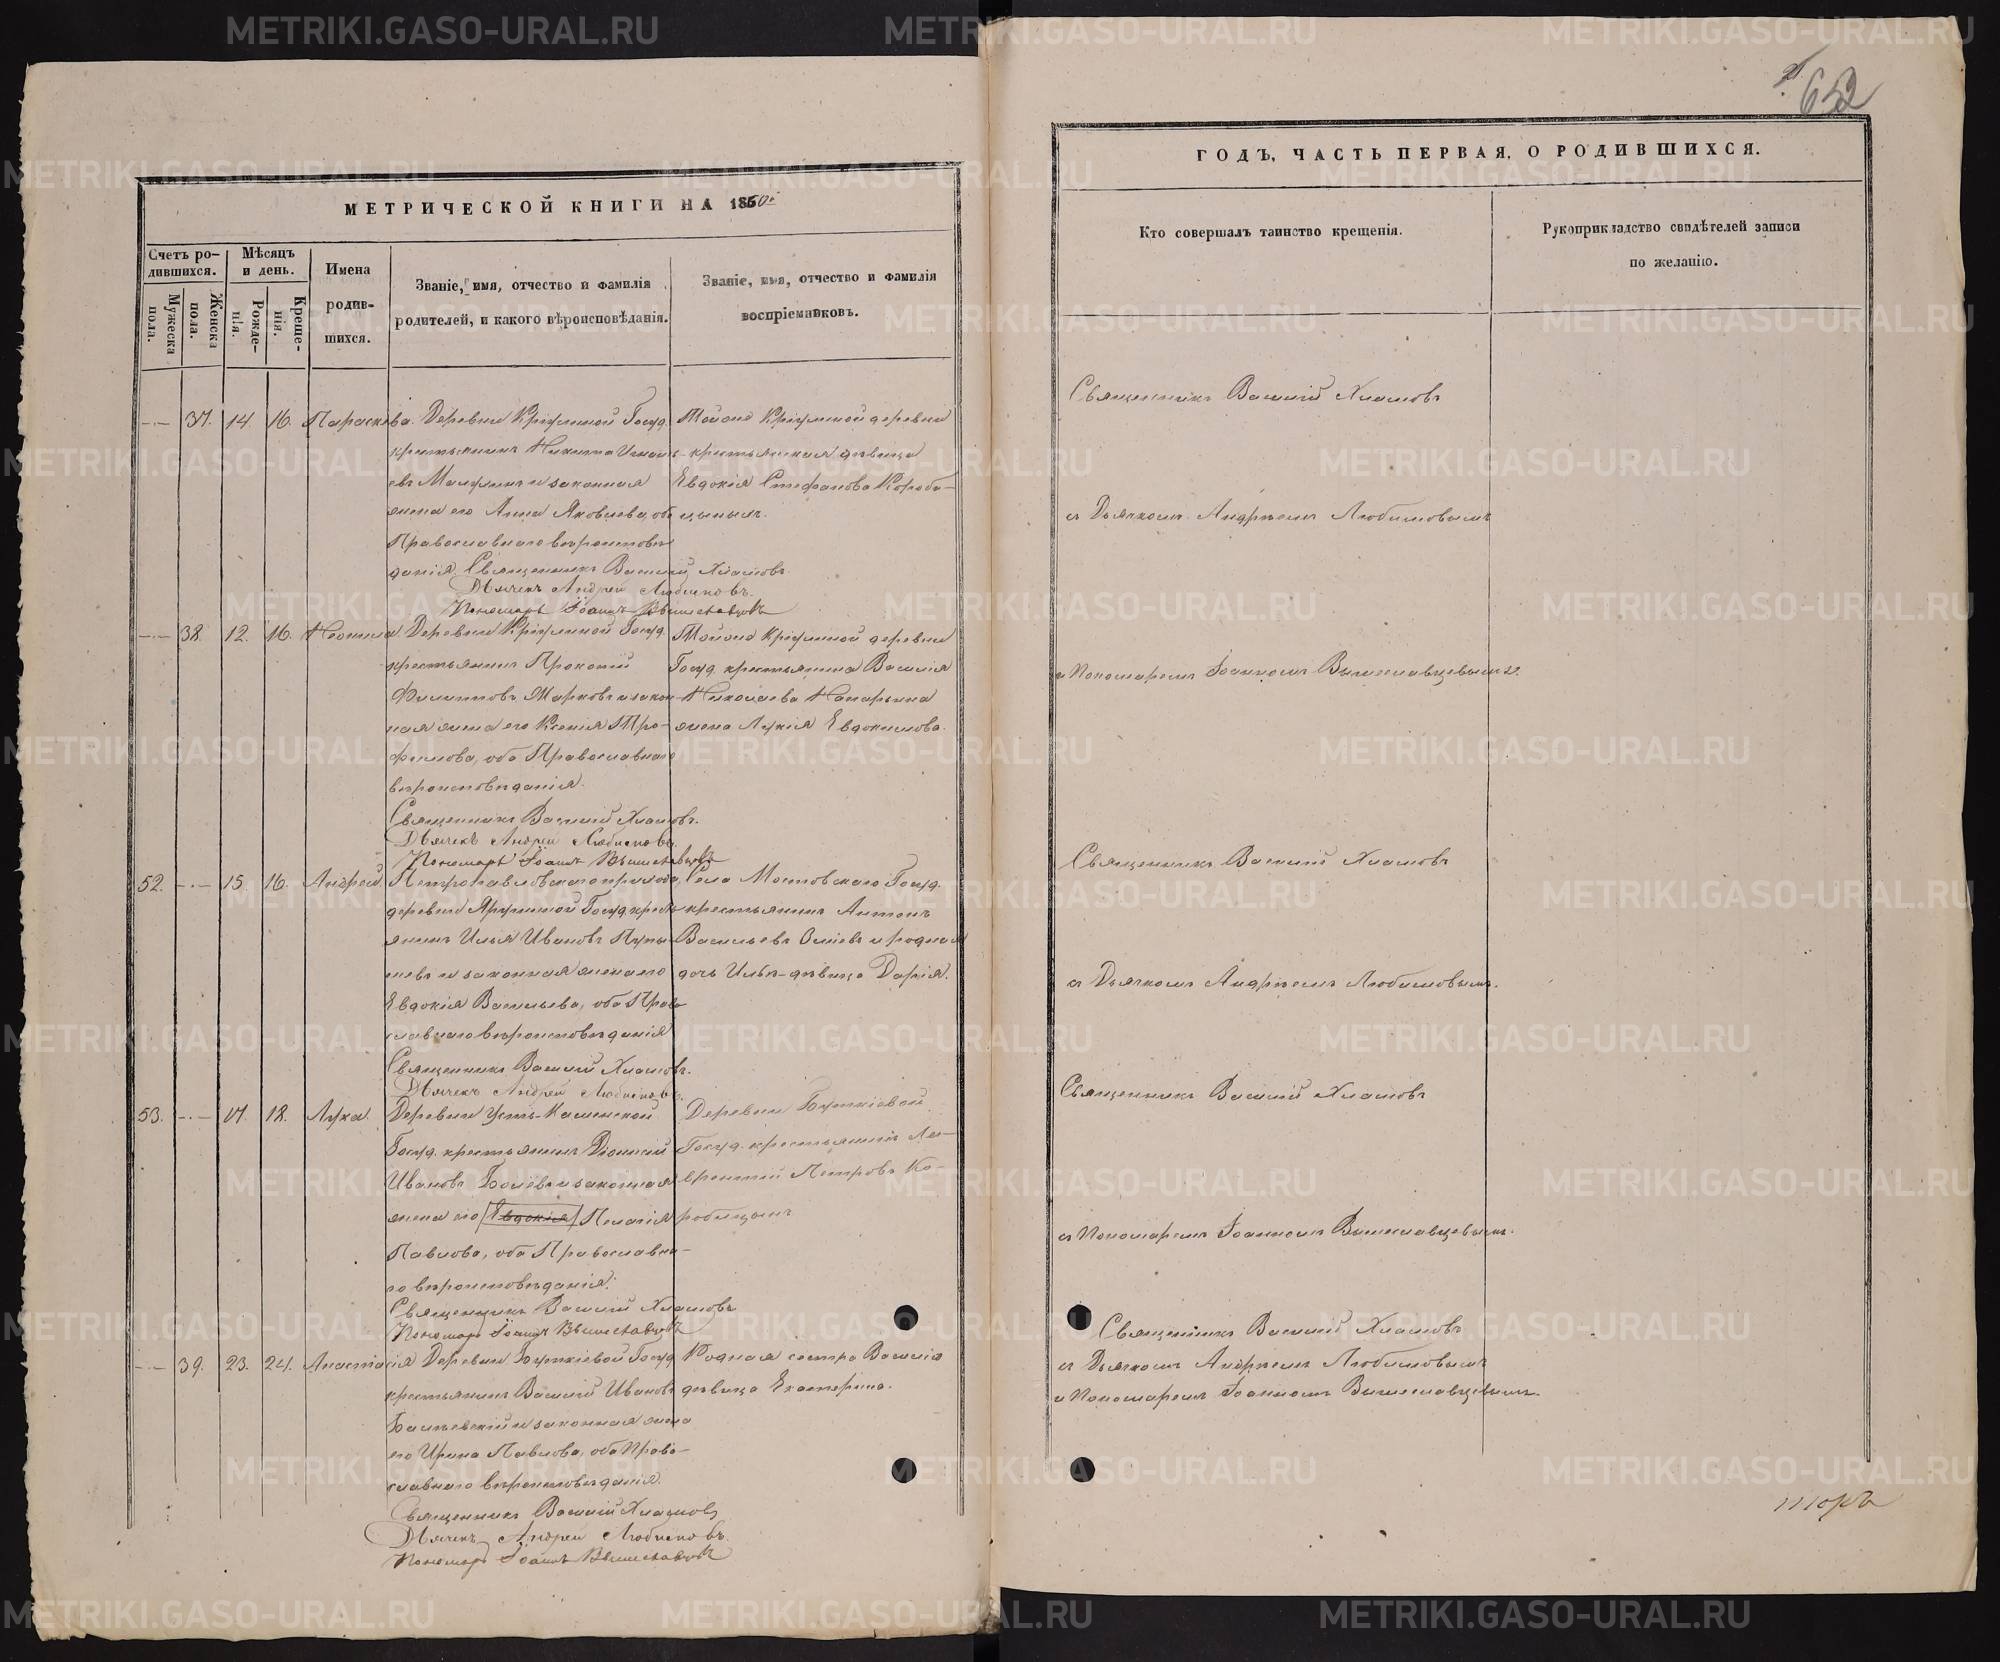 МЕТРИЧЕСКОЙ КНИГИ НА 1860й
Счетъ ро-
дившихся.
Мужеска
пола.
Женска
пола.
Мѣсяцъ
и день.
Рожде-
нія.
Креще-
нія.
Имена
родив-
шихся.
Званіе, имя, отчество и фамилія
родителей, и какого вѣроисповѣданія.
Званіе, имя, отчество и фамилія
воспріемниковъ.
37. 14 16. Параскева. Деревни Кріулиной Госуд.
крестьянинъ Никита
и законная
жена его Анна Яковлева, обо
Православнаго вѣроисповѣ
данія. Священникъ Василій Хламовъ
Дьячекъ Андрей Любимовъ.
Пономарь Іоаннъ Вышеславцовъ
Тойже Кріулиной деревни
крестьянская дѣвица
Евдокія Стефанова Короби-
цыныхъ.
38. 12. 16. Неонила Деревни Кріулиной Госуд.
крестьянинъ Прокопій
Филипповъ Марковъ и закон
ная жена его Ксенія Тро-
фимова, оба Православнаго
вѣроисповѣданія.
Священникъ Василій Хламовъ.
Дьячекъ Андрей Любимовъ.
Пономарь Іоаннъ Вышеславцовъ
Тойже Кріулиной деревни
Госуд. крестьянина Василія
Николаева
жена Лукія Евдокимова.
52. 15. 16. Андрей. Петропавловскаго прихода,
деревни Госуд. кресть
янинъ Илья Ивановъ Пупы
шевъ и законная жена его
Евдокія Васильева, оба Право
славнаго вѣроисповѣданія
Священникъ Василій Хламовъ.
Дьячекъ Андрей Любимовъ.
Села Мостовскаго Госуд.
крестьянинъ Антонъ
Васильевъ и родная
дочь Ильи дѣвица Дарія.
53. 17. 18. Лука. Деревни Усть-Каменской
Госуд. крестьянинъ Діонисій
Ивановъ и законная
жена его Евдокія Пелагія
Павлова, оба Православна-
го вѣроисповѣданія.
Священникъ Василій Хламовъ
Пономарь Іоаннъ Вышеславцовъ
Деревни Буткіевой
Госуд. крестьянинъ Ла-
врентій Петровъ Ко-
робицынъ
39. 23. 24. Анастасія Деревни Буткіевой Госуд
крестьянинъ Василій Ивановъ
и законная жена
его Ирина Павлова, оба Право-
славнаго вѣроисповѣданія.
Священникъ Василій Хламовъ
Дьячекъ Андрей Любимовъ.
Пономарь Іоаннъ Вышеславцовъ
Родная сестра Василія
дѣвица Екатерина.
652
ГОДЪ, ЧАСТЬ ПЕРВАЯ, О РОДИВШИХСЯ.
Кто совершалъ таинство крещенія.
Рукоприкладство свидѣтелей записи
по желанію.
Священникъ Василій Хламовъ
съ Дьячкомъ Андреемъ Любимовымъ
и Пономаремъ Іоанномъ Вышеславцевымъ.
Священникъ Василій Хламовъ
съ Дьячкомъ Андреемъ Любимовымъ.
Священникъ Василій Хламовъ
съ Пономаремъ Іоанномъ Вышеславцевымъ.
Священникъ Василій Хламовъ
съ Дьячкомъ Андреемъ Любимовымъ
и Пономаремъ Іоанномъ Вышеславцевымъ.
METRIKI.GASO-URAL.RU